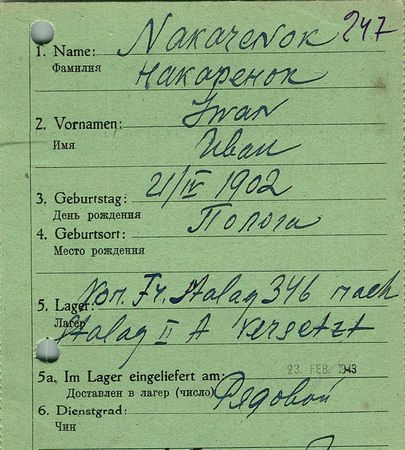 247
1. Name: Nakarenok
Фамилия Накаренок
2. Vornamen: Iwan
Имя Иван
3. Geburtstag: 21/IV 1902
День рождения
4. Geburtsort: Полога
Место рождения
5. Lager: Kom. Fr. Stalag 346 nach
Лагерь Stalag II A versetzt
5a, Im Lager eingeliefert am: 23. FEB. 1943
Доставлен в лагерь (число)
6. Dienstgrad: Рядовой
Чин